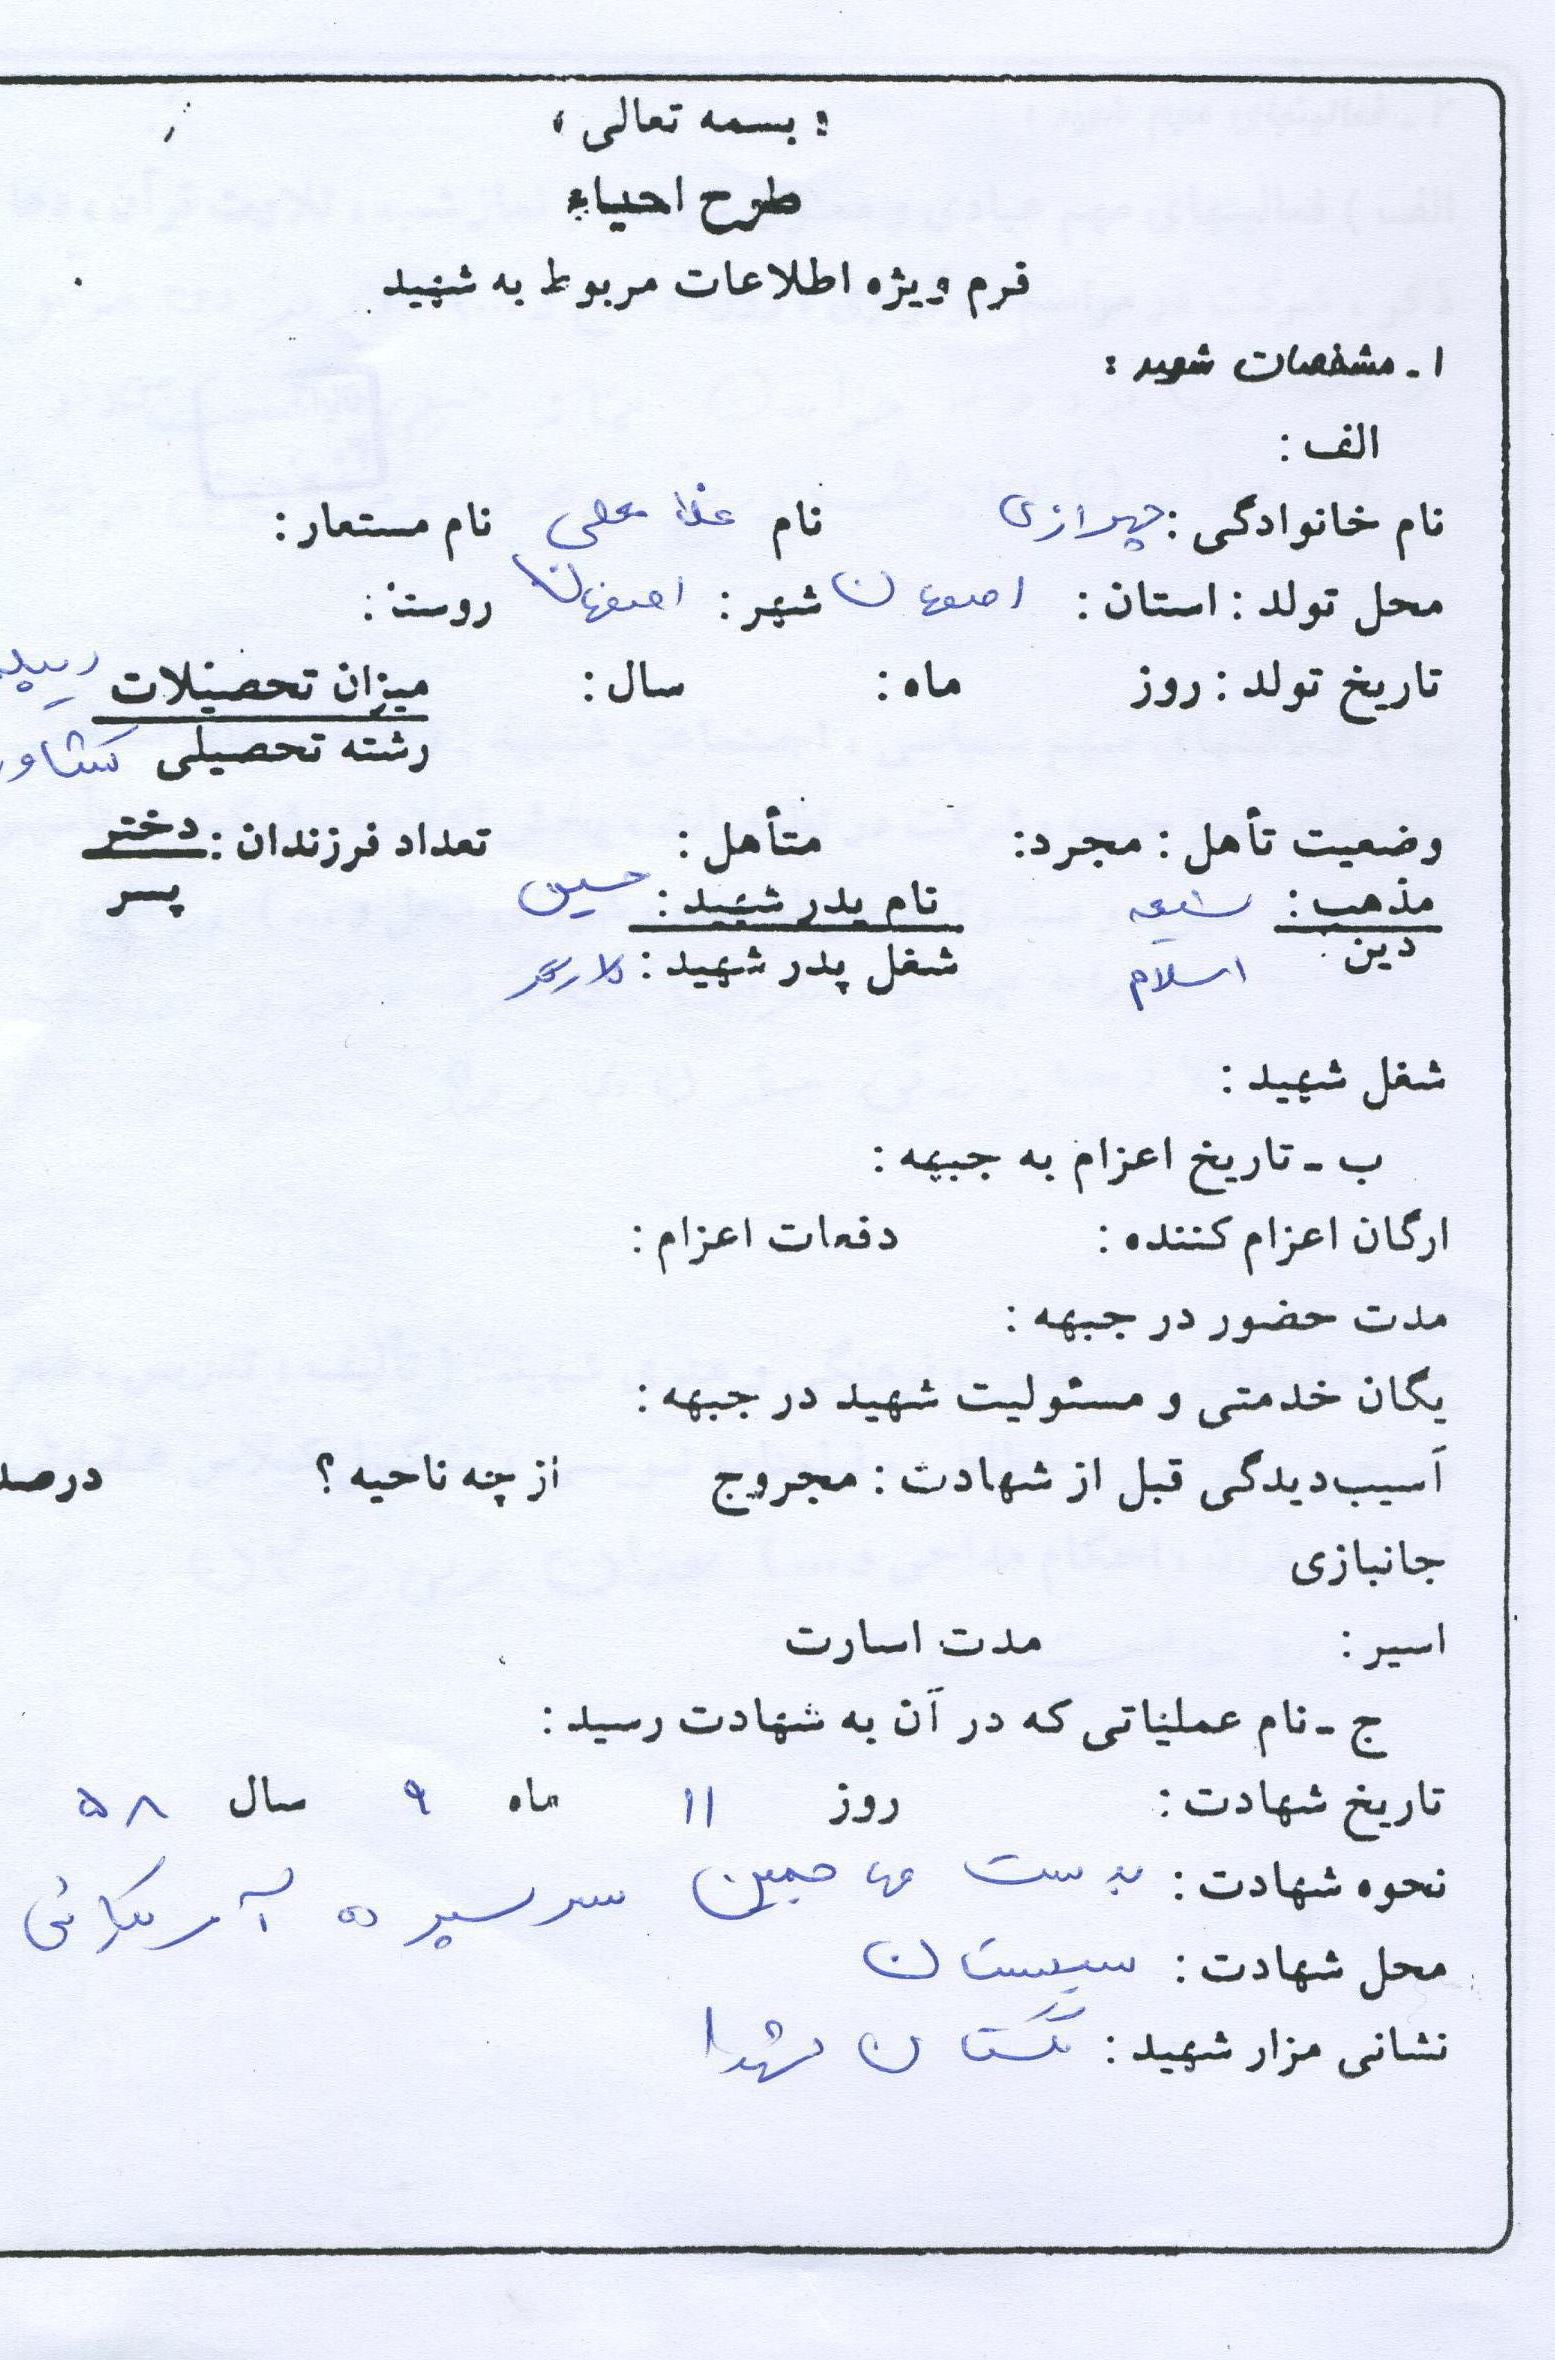 « بسمه تعالی »
طرح احیاء
فرم ویژه اطلاعات مربوط به شهید
۱ـ مشخصات شهید :
الف :
نام خانوادگی : چهرازی نام غلامعلی نام مستعار :
محل تولد : استان : اصفهان شهر : اصفهان روستا :
تاریخ تولد : روز ماه : سال : میزان تحصیلات
رشته تحصیلی
وضعیت تأهل : مجرد : متأهل : تعداد فرزندان : دختر
پسر
مذهب : شیعه نام پدر شهید : حسین
دین : اسلام شغل پدر شهید : کارگر
شغل شهید :
ب ـ تاریخ اعزام به جبهه :
ارگان اعزام کننده : دفعات اعزام :
مدت حضور در جبهه :
یگان خدمتی و مسئولیت شهید در جبهه :
آسیب‌دیدگی قبل از شهادت : مجروح از چه ناحیه ؟ درصد
جانبازی
اسیر : مدت اسارت
ج ـ نام عملیاتی که در آن به شهادت رسید :
تاریخ شهادت : روز ۱۱ ماه ۹ سال ۵۸
نحوه شهادت : بدست مهاجمین سرسپرده آمریکائی
محل شهادت : سیستان
نشانی مزار شهید : گلستان شهدا